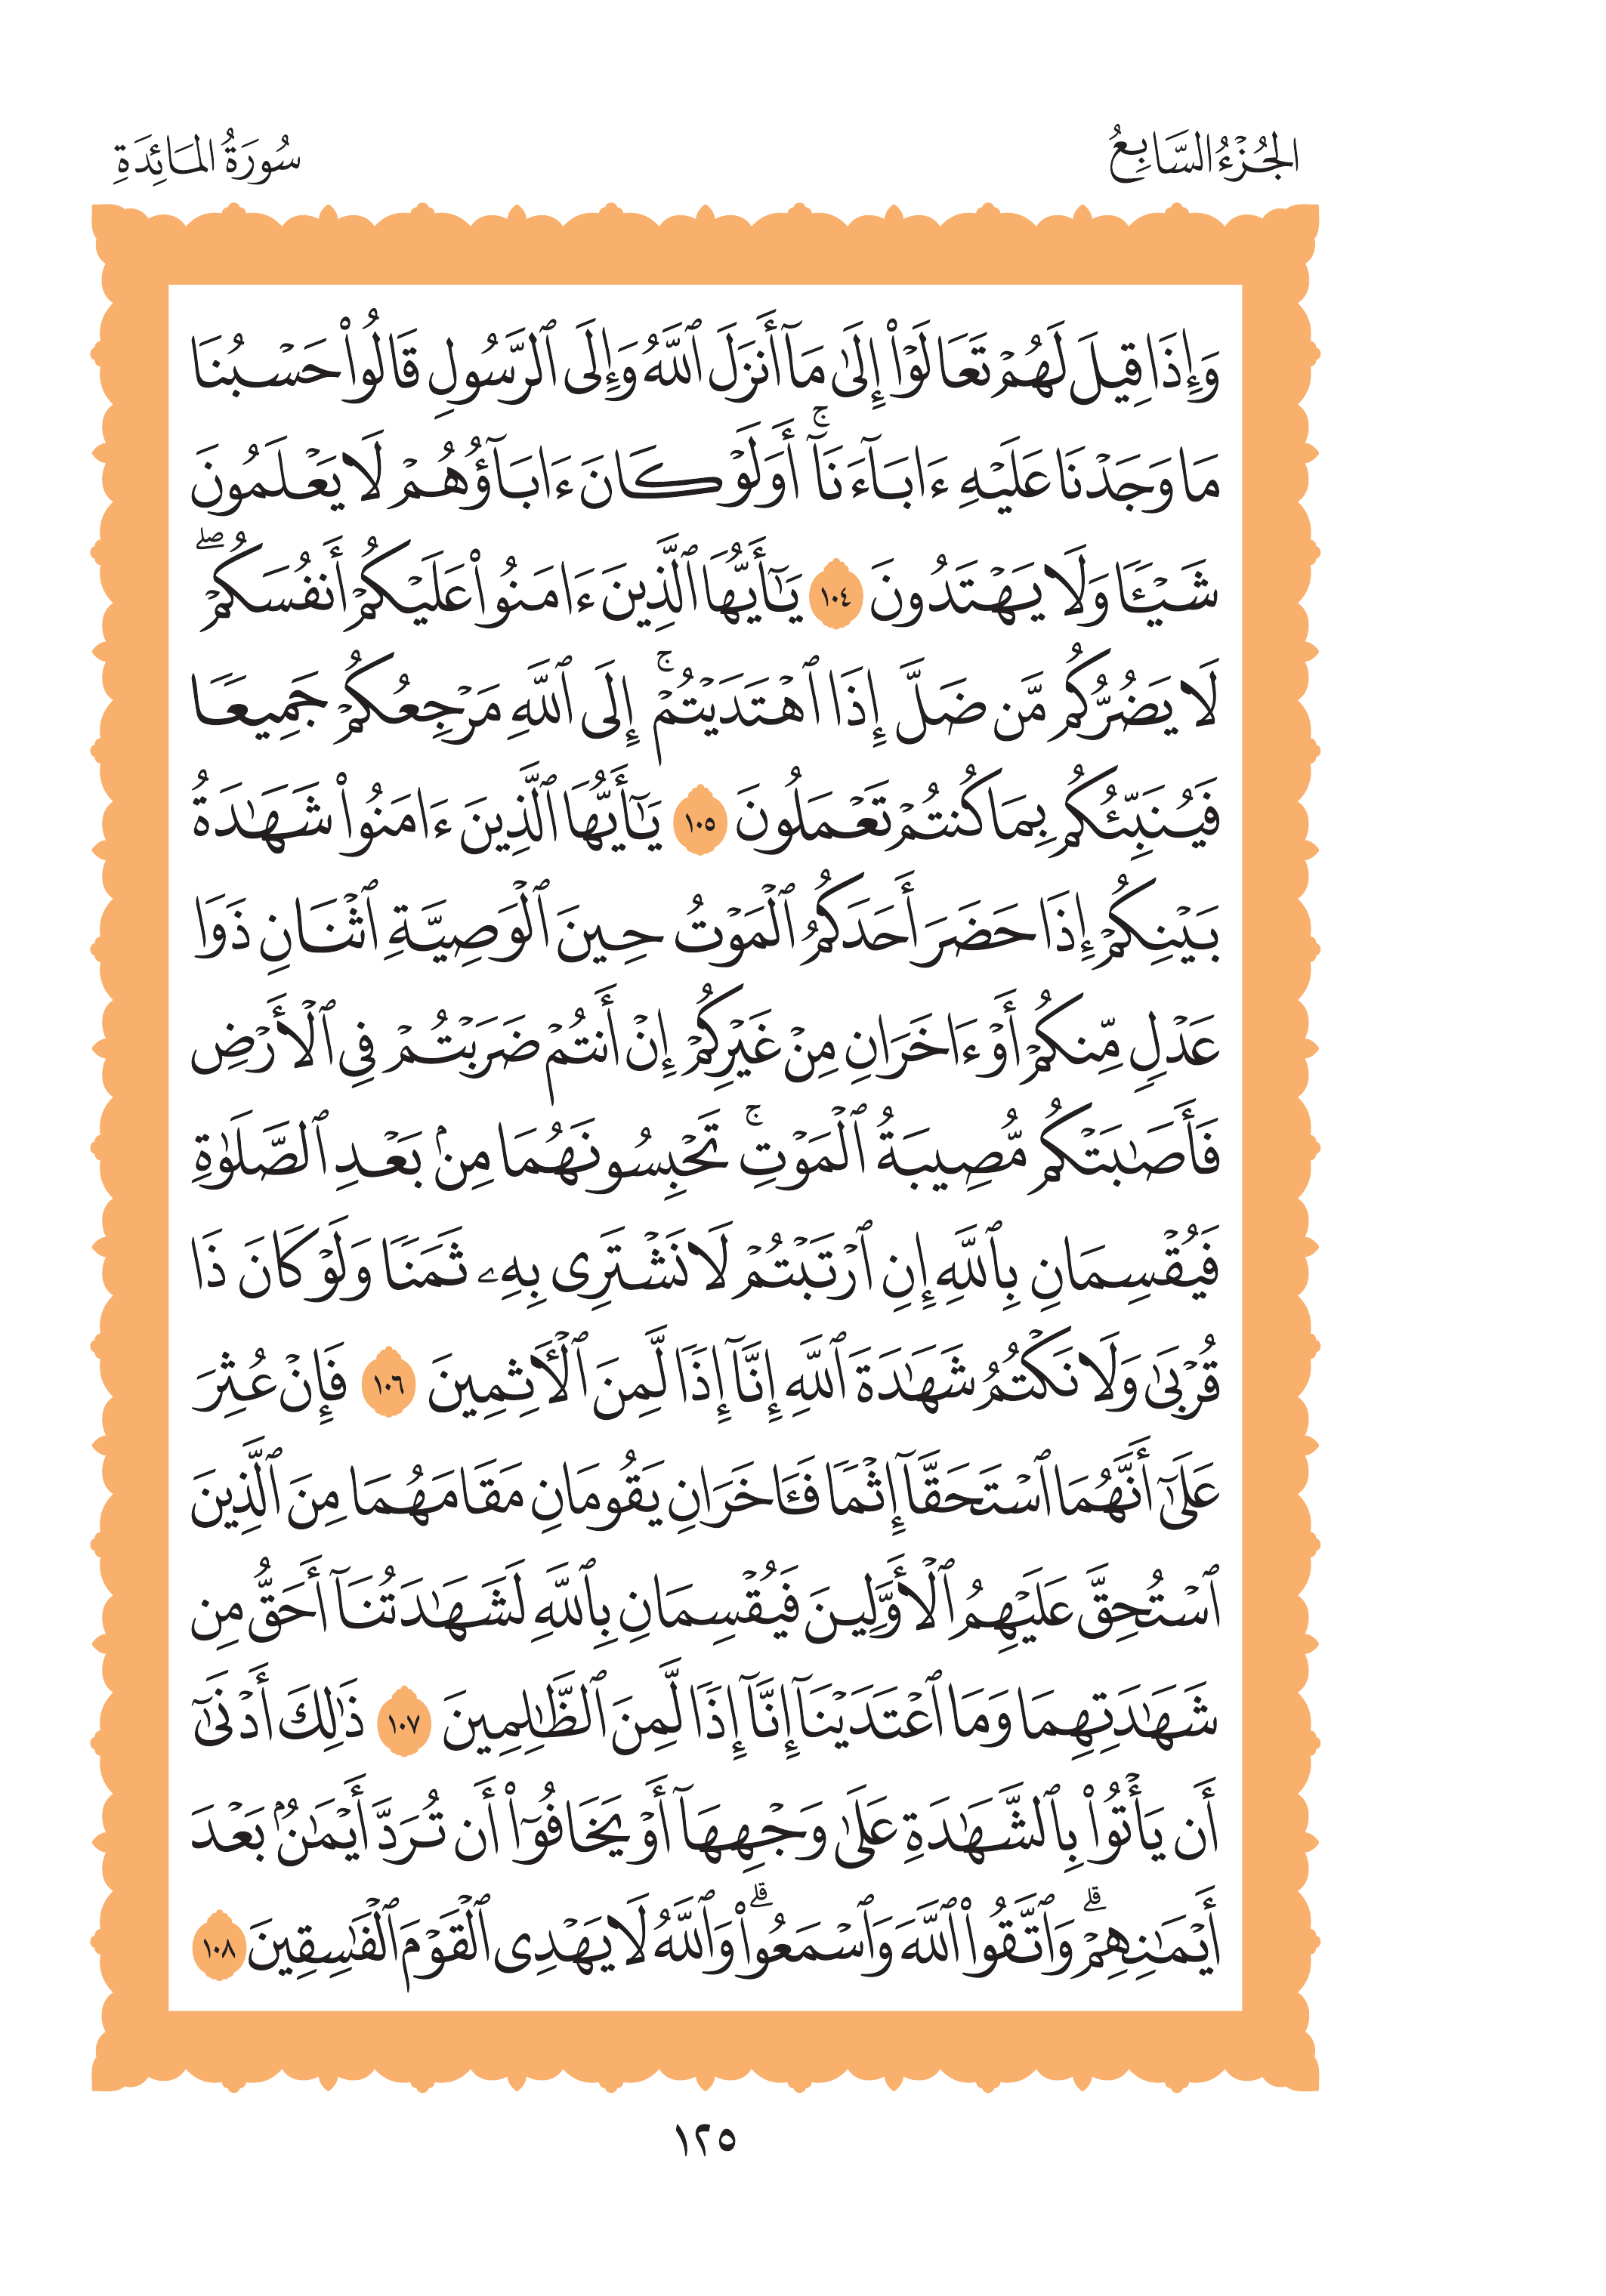 الجُزْءُ السَّابِعُ
سُورَةُ المَائِدَةِ
وَإِذَا قِيلَ لَهُمْ تَعَالَوْا۟ إِلَىٰ مَآ أَنزَلَ ٱللَّهُ وَإِلَى ٱلرَّسُولِ قَالُوا۟ حَسْبُنَا
مَا وَجَدْنَا عَلَيْهِ ءَابَآءَنَآ ۚ أَوَلَوْ كَانَ ءَابَآؤُهُمْ لَا يَعْلَمُونَ
شَيْـًٔا وَلَا يَهْتَدُونَ ١٠٤ يَـٰٓأَيُّهَا ٱلَّذِينَ ءَامَنُوا۟ عَلَيْكُمْ أَنفُسَكُمْ ۖ
لَا يَضُرُّكُم مَّن ضَلَّ إِذَا ٱهْتَدَيْتُمْ ۚ إِلَى ٱللَّهِ مَرْجِعُكُمْ جَمِيعًا
فَيُنَبِّئُكُم بِمَا كُنتُمْ تَعْمَلُونَ ١٠٥ يَـٰٓأَيُّهَا ٱلَّذِينَ ءَامَنُوا۟ شَهَـٰدَةُ
بَيْنِكُمْ إِذَا حَضَرَ أَحَدَكُمُ ٱلْمَوْتُ حِينَ ٱلْوَصِيَّةِ ٱثْنَانِ ذَوَا
عَدْلٍ مِّنكُمْ أَوْ ءَاخَرَانِ مِنْ غَيْرِكُمْ إِنْ أَنتُمْ ضَرَبْتُمْ فِى ٱلْأَرْضِ
فَأَصَـٰبَتْكُم مُّصِيبَةُ ٱلْمَوْتِ ۚ تَحْبِسُونَهُمَا مِنۢ بَعْدِ ٱلصَّلَوٰةِ
فَيُقْسِمَانِ بِٱللَّهِ إِنِ ٱرْتَبْتُمْ لَا نَشْتَرِى بِهِۦ ثَمَنًا وَلَوْ كَانَ ذَا
قُرْبَىٰ وَلَا نَكْتُمُ شَهَـٰدَةَ ٱللَّهِ إِنَّآ إِذًا لَّمِنَ ٱلْـَٔاثِمِينَ ١٠٦ فَإِنْ عُثِرَ
عَلَىٰٓ أَنَّهُمَا ٱسْتَحَقَّآ إِثْمًا فَـَٔاخَرَانِ يَقُومَانِ مَقَامَهُمَا مِنَ ٱلَّذِينَ
ٱسْتُحِقَّ عَلَيْهِمُ ٱلْأَوَّلِينَ فَيُقْسِمَانِ بِٱللَّهِ لَشَهَـٰدَتُنَآ أَحَقُّ مِن
شَهَـٰدَتِهِمَا وَمَا ٱعْتَدَيْنَآ إِنَّآ إِذًا لَّمِنَ ٱلظَّـٰلِمِينَ ١٠٧ ذَٰلِكَ أَدْنَىٰٓ
أَن يَأْتُوا۟ بِٱلشَّهَـٰدَةِ عَلَىٰ وَجْهِهَآ أَوْ يَخَافُوٓا۟ أَن تُرَدَّ أَيْمَـٰنٌۢ بَعْدَ
أَيْمَـٰنِهِمْ ۗ وَٱتَّقُوا۟ ٱللَّهَ وَٱسْمَعُوا۟ ۗ وَٱللَّهُ لَا يَهْدِى ٱلْقَوْمَ ٱلْفَـٰسِقِينَ ١٠٨
١٢٥